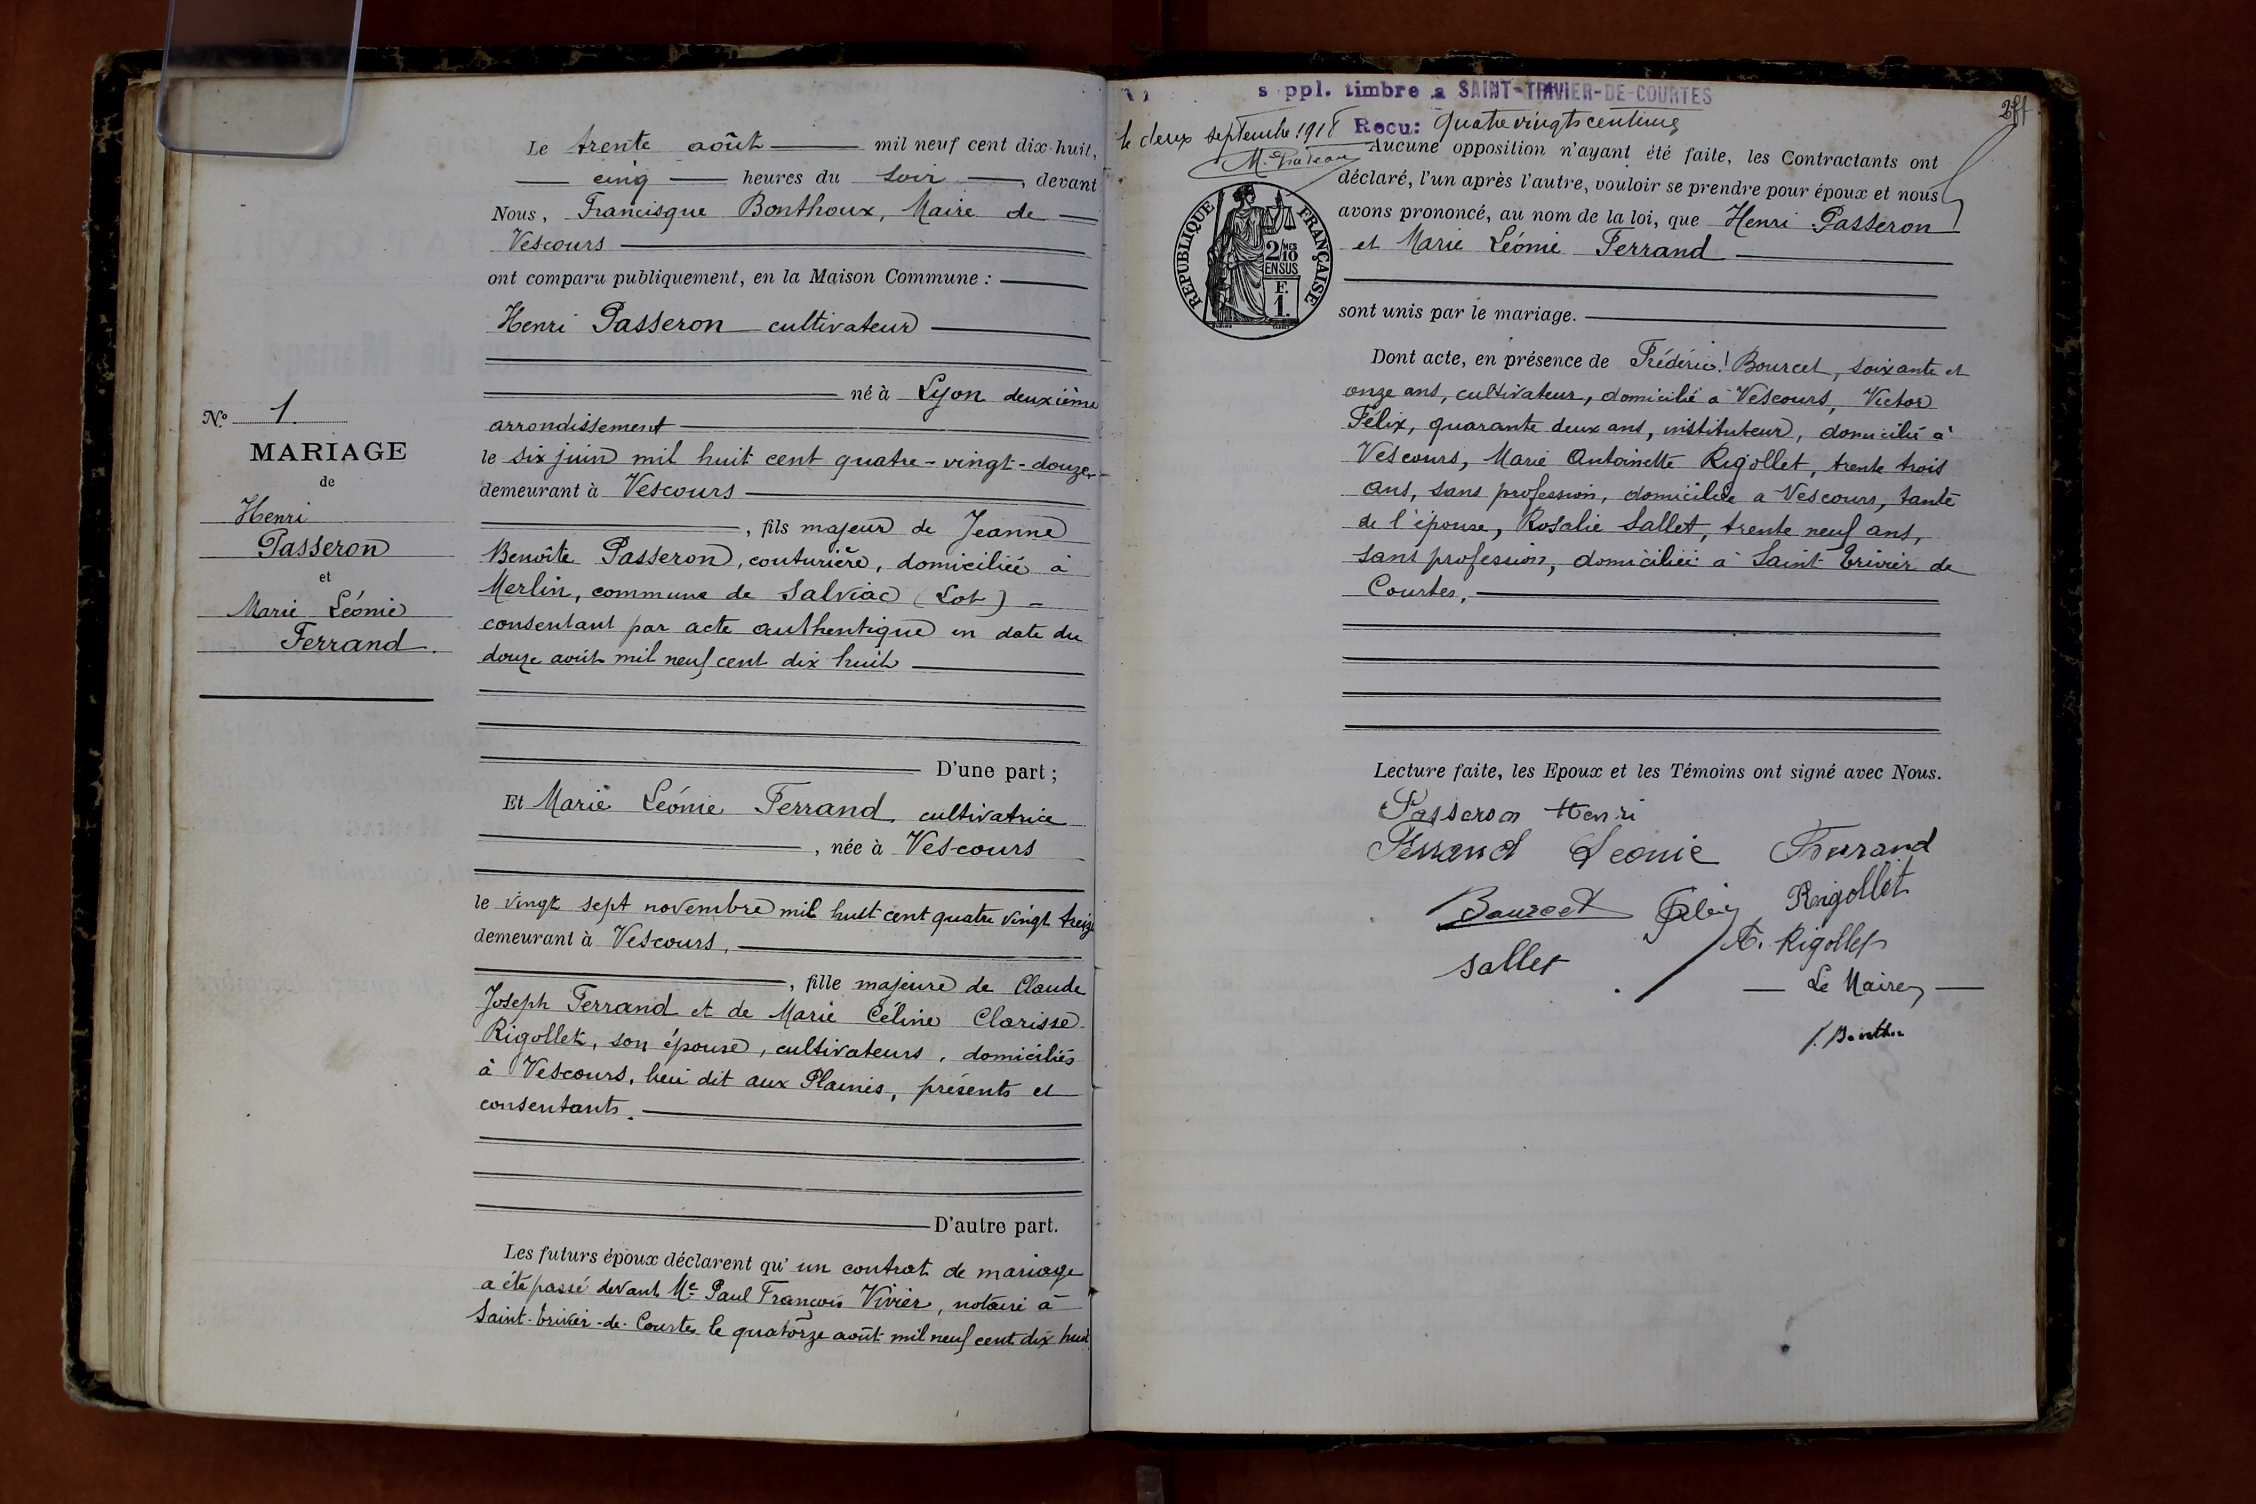 N.º 1.
MARIAGE
de
Henri
Passeron
et
Marie Léonie
Ferrand.
Le trente août mil neuf cent dix-huit,
cinq heures du soir, devant
Nous, Francisque Bonthoux, Maire de
Vescours
ont comparu publiquement, en la Maison Commune :
Henri Passeron cultivateur
né à Lyon deuxième
arrondissement
le six juin mil huit cent quatre-vingt-douze,
demeurant à Vescours
, fils majeur de Jeanne
Benoîte Passeron, couturière, domiciliée à
Merlin, commune de Salviac (Lot) -
consentant par acte authentique en date du
douze août mil neuf cent dix huit
D'une part ;
Et Marie Léonie Ferrand, cultivatrice
, née à Vescours
le vingt sept novembre mil huit cent quatre vingt treize
demeurant à Vescours,
, fille majeure de Claude
Joseph Ferrand et de Marie Céline Clarisse
Rigollet, son épouse, cultivateurs, domiciliés
à Vescours, lieu dit aux Plaines, présents et
consentants.
D'autre part.
Les futurs époux déclarent qu'un contrat de mariage
a été passé devant Me Paul François Vivier, notaire à
Saint-Trivier-de-Courtes le quatorze août mil neuf cent dix huit
s ppl. timbre a SAINT-TRIVIER-DE-COURTES
le deux septembre 1918 Recu: Quatre vingts centimes
RÉPUBLIQUE FRANÇAISE
2/10
MES
EN SUS
F.
1.
Aucune opposition n'ayant été faite, les Contractants ont
déclaré, l'un après l'autre, vouloir se prendre pour époux et nous
avons prononcé, au nom de la loi, que Henri Passeron
et Marie Léonie Ferrand
sont unis par le mariage.
Dont acte, en présence de Frédéric Bourcet, soixante et
onze ans, cultivateur, domicilié à Vescours, Victor
Félix, quarante deux ans, instituteur, domicilié à
Vescours, Marie Antoinette Rigollet, trente trois
ans, sans profession, domiciliée a Vescours, tante
de l'épouse, Rosalie Sallet, trente neuf ans,
sans profession, domiciliée à Saint Trivier de
Courtes.
Lecture faite, les Epoux et les Témoins ont signé avec Nous.
Passeron Henri
Ferrand Leonie Ferrand
Bourcet Félix Rigollet
A. Rigollet
Sallet
Le Maire,